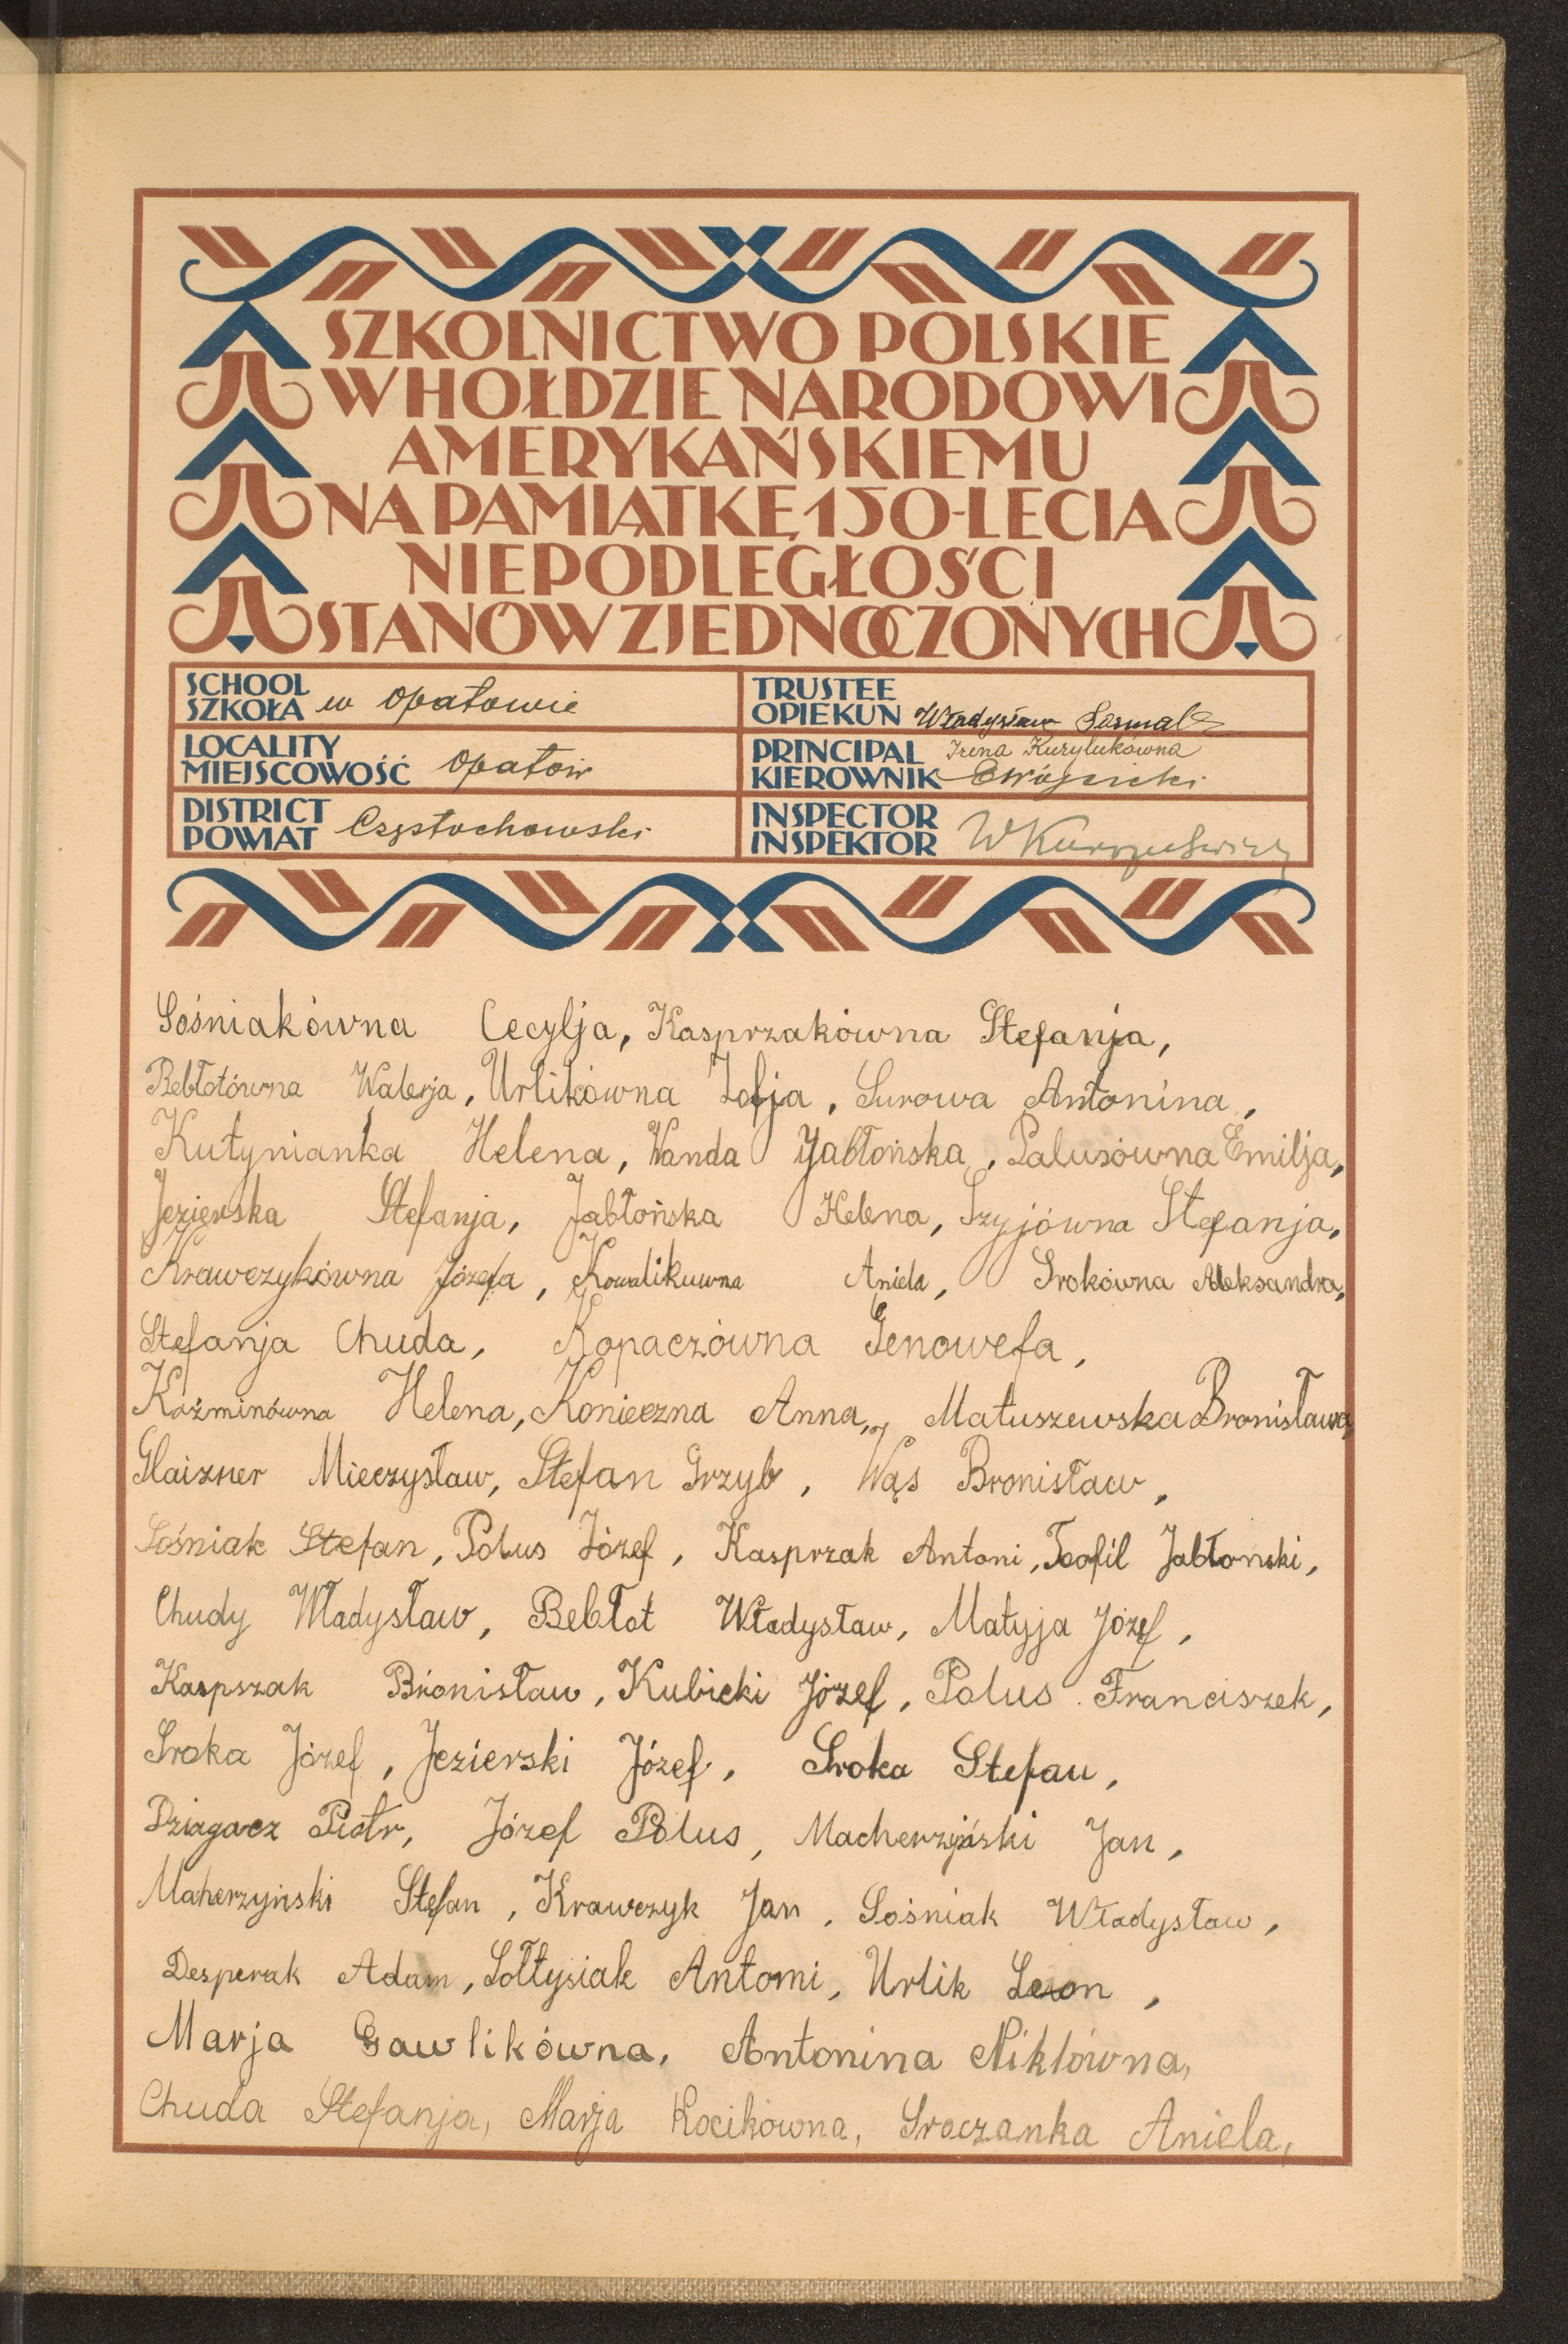 SZKOLNICTWO POLSKIE
W HOŁDZIE NARODOWI
AMERYKAŃSKIEMU
NA PAMIĄTKĘ 150-LECIA
NIEPODLEGŁOŚCI
STANÓW ZJEDNOCZONYCH
SCHOOL
SZKOŁA w Opatowie
TRUSTEE
OPIEKUN Władysław
LOCALITY
MIEJSCOWOŚĆ Opatów
PRINCIPAL Irena Kurylukówna
KIEROWNIK
DISTRICT
POWIAT Częstochowski
INSPECTOR
INSPEKTOR
Sośniakówna Cecylja, Kasprzakówna Stefanja,
Bebłotówna Walerja, Urlikówna Zofja, Surowa Antonina,
Kutynianka Helena, Wanda Jabłońska, Palusówna Emilja,
Jezierska Stefanja, Jabłońska Helena, Szyjówna Stefanja,
Krawczykówna Józefa, Kowalikuwna Aniela, Srokówna Aleksandra,
Stefanja Chuda, Kopaczówna Genowefa,
Koźminówna Helena, Konieczna Anna, Matuszewska Bronisława,
Glaizner Mieczysław, Stefan Grzyb, Wąs Bronisław,
Sośniak Stefan, Polus Józef, Kasprzak Antoni, Teofil Jabłonski,
Chudy Władysław, Bebłot Władysław, Matyja Józef,
Kaspszak Bronisław, Kubicki Józef, Polus Franciszek,
Sroka Józef, Jezierski Józef, Sroka Stefan,
Dziagacz Piotr, Józef Polus, Macherzyński Jan,
Maherzyński Stefan, Krawczyk Jan, Sośniak Władysław,
Desperak Adam, Sołtysiak Antoni, Urlik Leon,
Marja Gawlikówna, Antonina Niklówna,
Chuda Stefanja, Marja Kocikówna, Sroczanka Aniela,